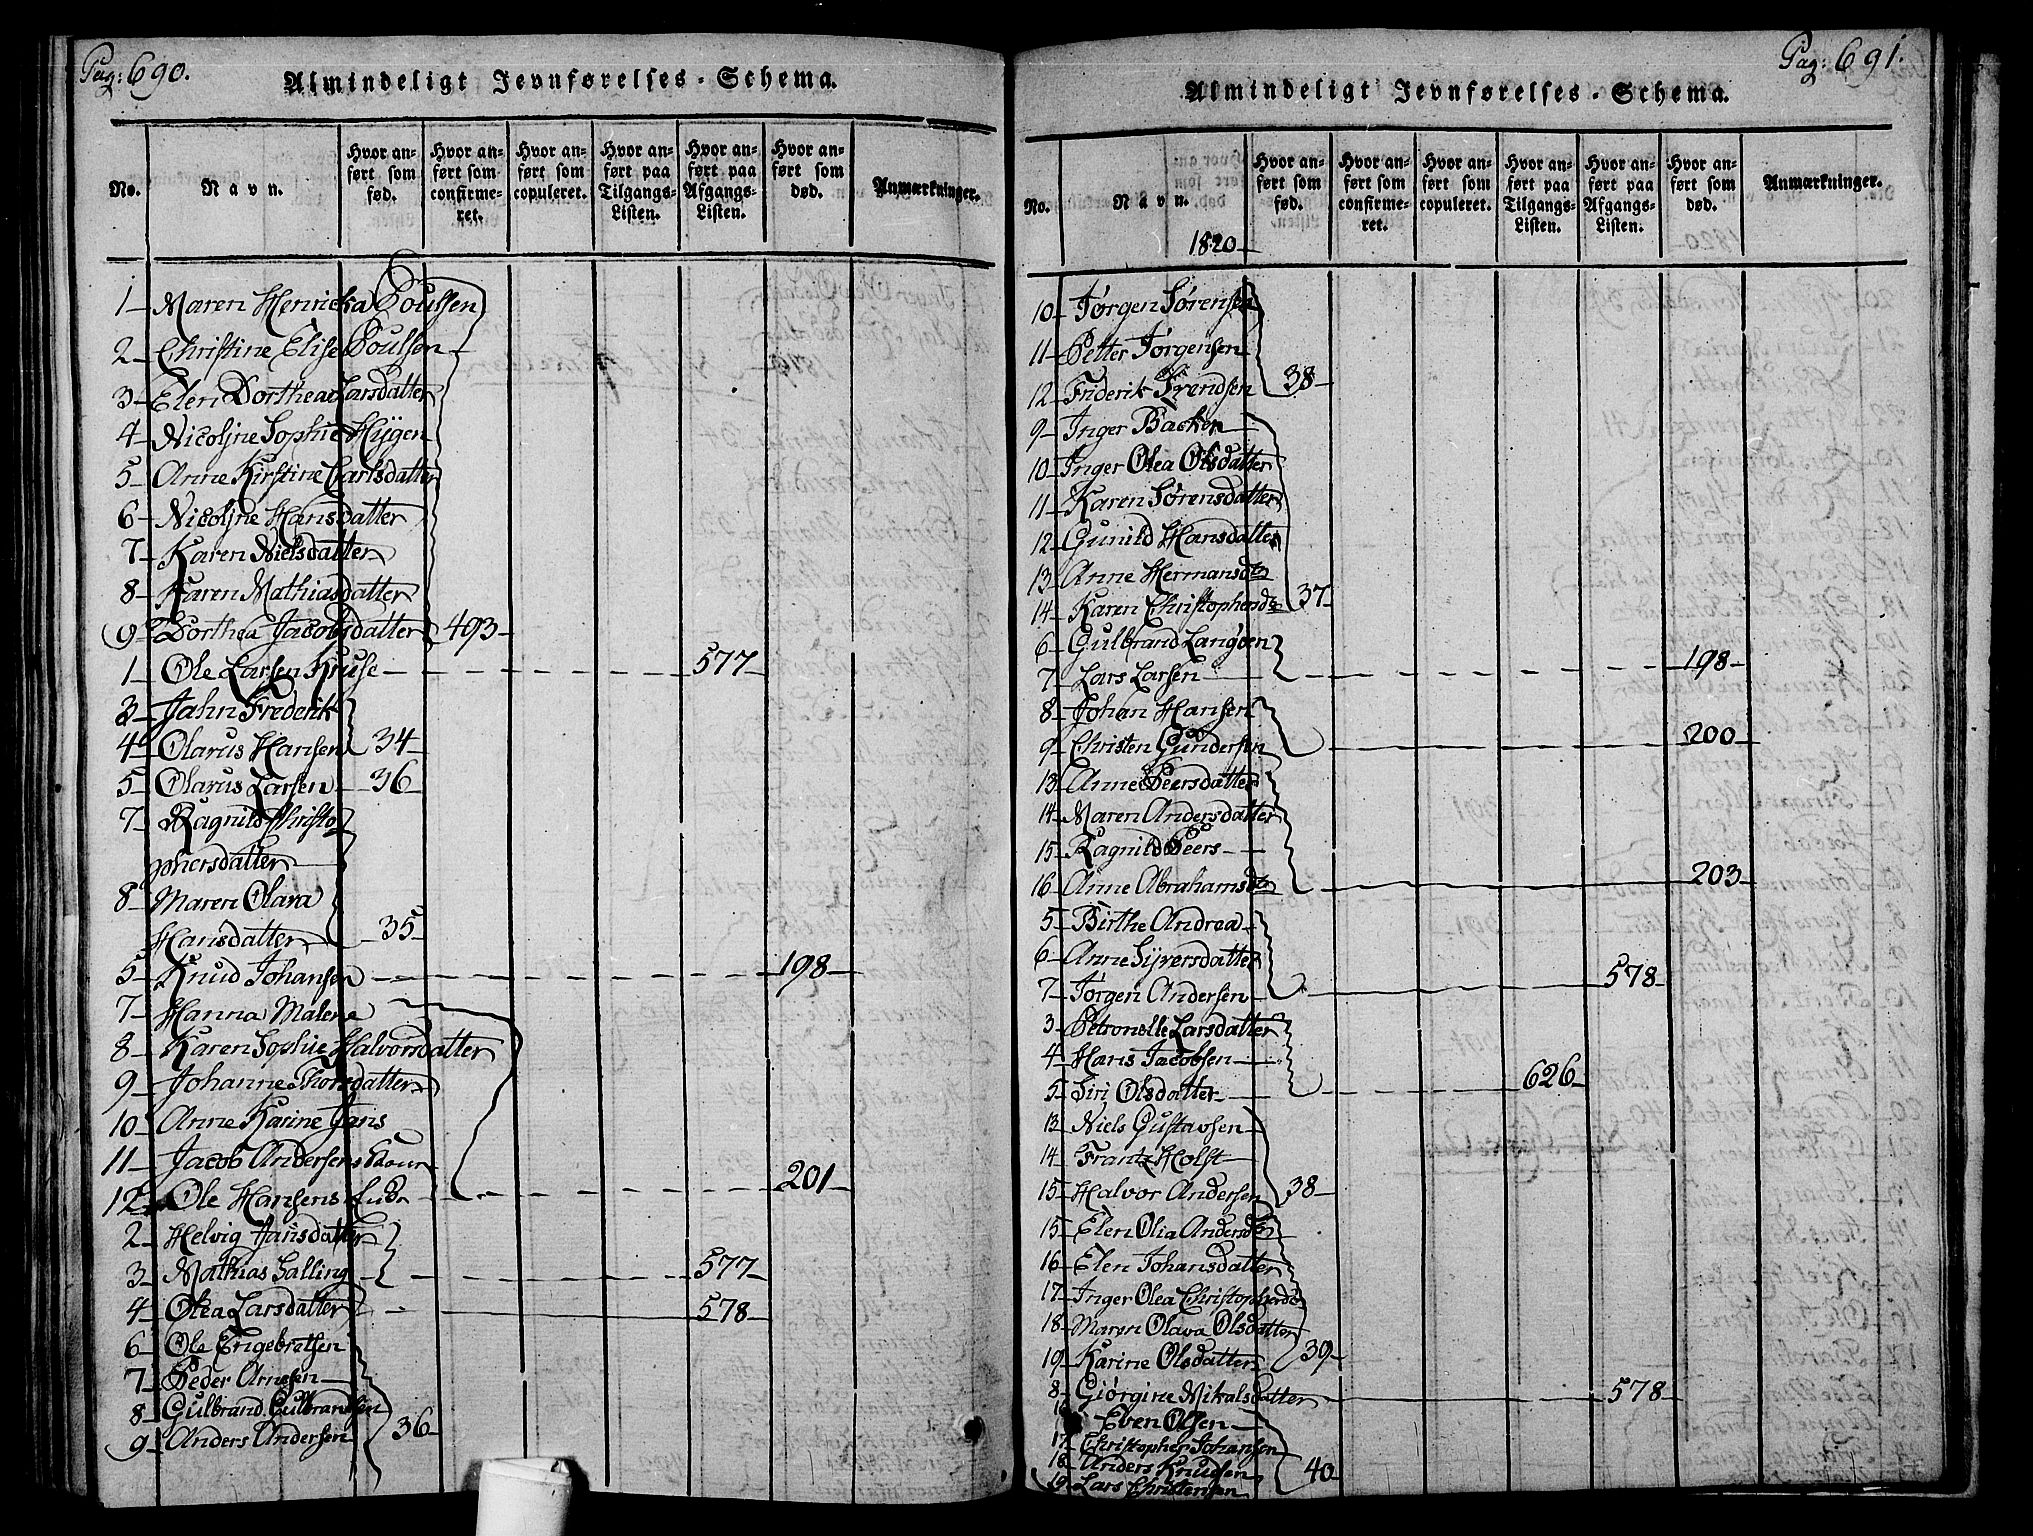 Pag: 690.
Almindeligt Jevnførelses-Schema.
No.
Navn.
Hvor an-
ført som
fød.
Hvor an-
ført som
confirme-
ret.
Hvor an-
ført som
copuleret.
Hvor an-
ført paa
Tilgangs-
Listen.
Hvor an-
ført paa
Afgangs-
Listen.
Hvor an-
ført som
død.
Anmærkninger.
1 Maren Henricka Poulsen
2 Christine Elise Poulsen
3 Elen Dorthea Larsdatter
4 Nicoljne Sophie Hygen
5 Anne Kirstine Carlsdatter
6 Nicoljne Hansdatter
7 Karen Nielsdatter
8 Karen Mathiasdatter
9 Dorthea Jacobsdatter 493
1 Ole Larsen Kruse 577
3 Jahn Frederik
4 Olarus Hansen 34
5 Olarus Larsen 36
7 Ragnild Christo
phersdatter
8 Maren Olava
Hansdatter 35
5 Knud Johansen 198
7 Hanna Malene
8 Karen Sophie Halvorsdatter
9 Johanne Thorsdatter
10 Anne Karine Jans
11 Jacob Andersens
12 Ole Hansens 201
2 Helvig Jansdatter
3 Mathias Salling 577
4 Olea Larsdatter 578
6 Ole Engebretsen
7 Peder Arnesen
8 Gulbrand Gulbrandsen
9 Anders Andersen 36
Pag: 691.
Almindeligt Jevnførelses-Schema.
No.
Navn.
Hvor an-
ført som
fød.
Hvor an-
ført som
confirme-
ret.
Hvor an-
ført som
copuleret.
Hvor an-
ført paa
Tilgangs-
Listen.
Hvor an-
ført paa
Afgangs-
Listen.
Hvor an-
ført som
død.
Anmærkninger.
1820
10 Jørgen Sørensen
11 Petter Jørgensen
12 Friderik Frendsen 38
9 Inger Backen
10 Inger Olea Olsdatter
11 Karen Sørensdatter
12 Gunild Hansdatter
13 Anne Hermansdtr
14 Karen Christophersdtr 37
6 Gulbrand Langøen
7 Lars Larsen 198
8 Johan Hansen
9 Christen Gundersen 200
13 Anne Peersdatter
14 Maren Andersdatter
15 Ragnild Peers
16 Anne Abrahamsdtr 203
5 Birthe Andrea
6 Anne Syversdatter
7 Jørgen Andersen 578
3 Petronelle Larsdatter
4 Hans Jacobsen
5 Siri Olsdatter 626
13 Niels Gustavsen
14 Frantz Holst
15 Halvor Andersen 38
15 Elen Olia Andersdtr
16 Elen Johansdatter
17 Inger Olea Christophersd
18 Maren Olava Olsdatter
19 Karine Olsdatter 39
8 Giørgine Mikalsdatter 578
Even Olsen
17 Christopher Johansen
18 Anders Knudsen 40
19 Lars Christensen